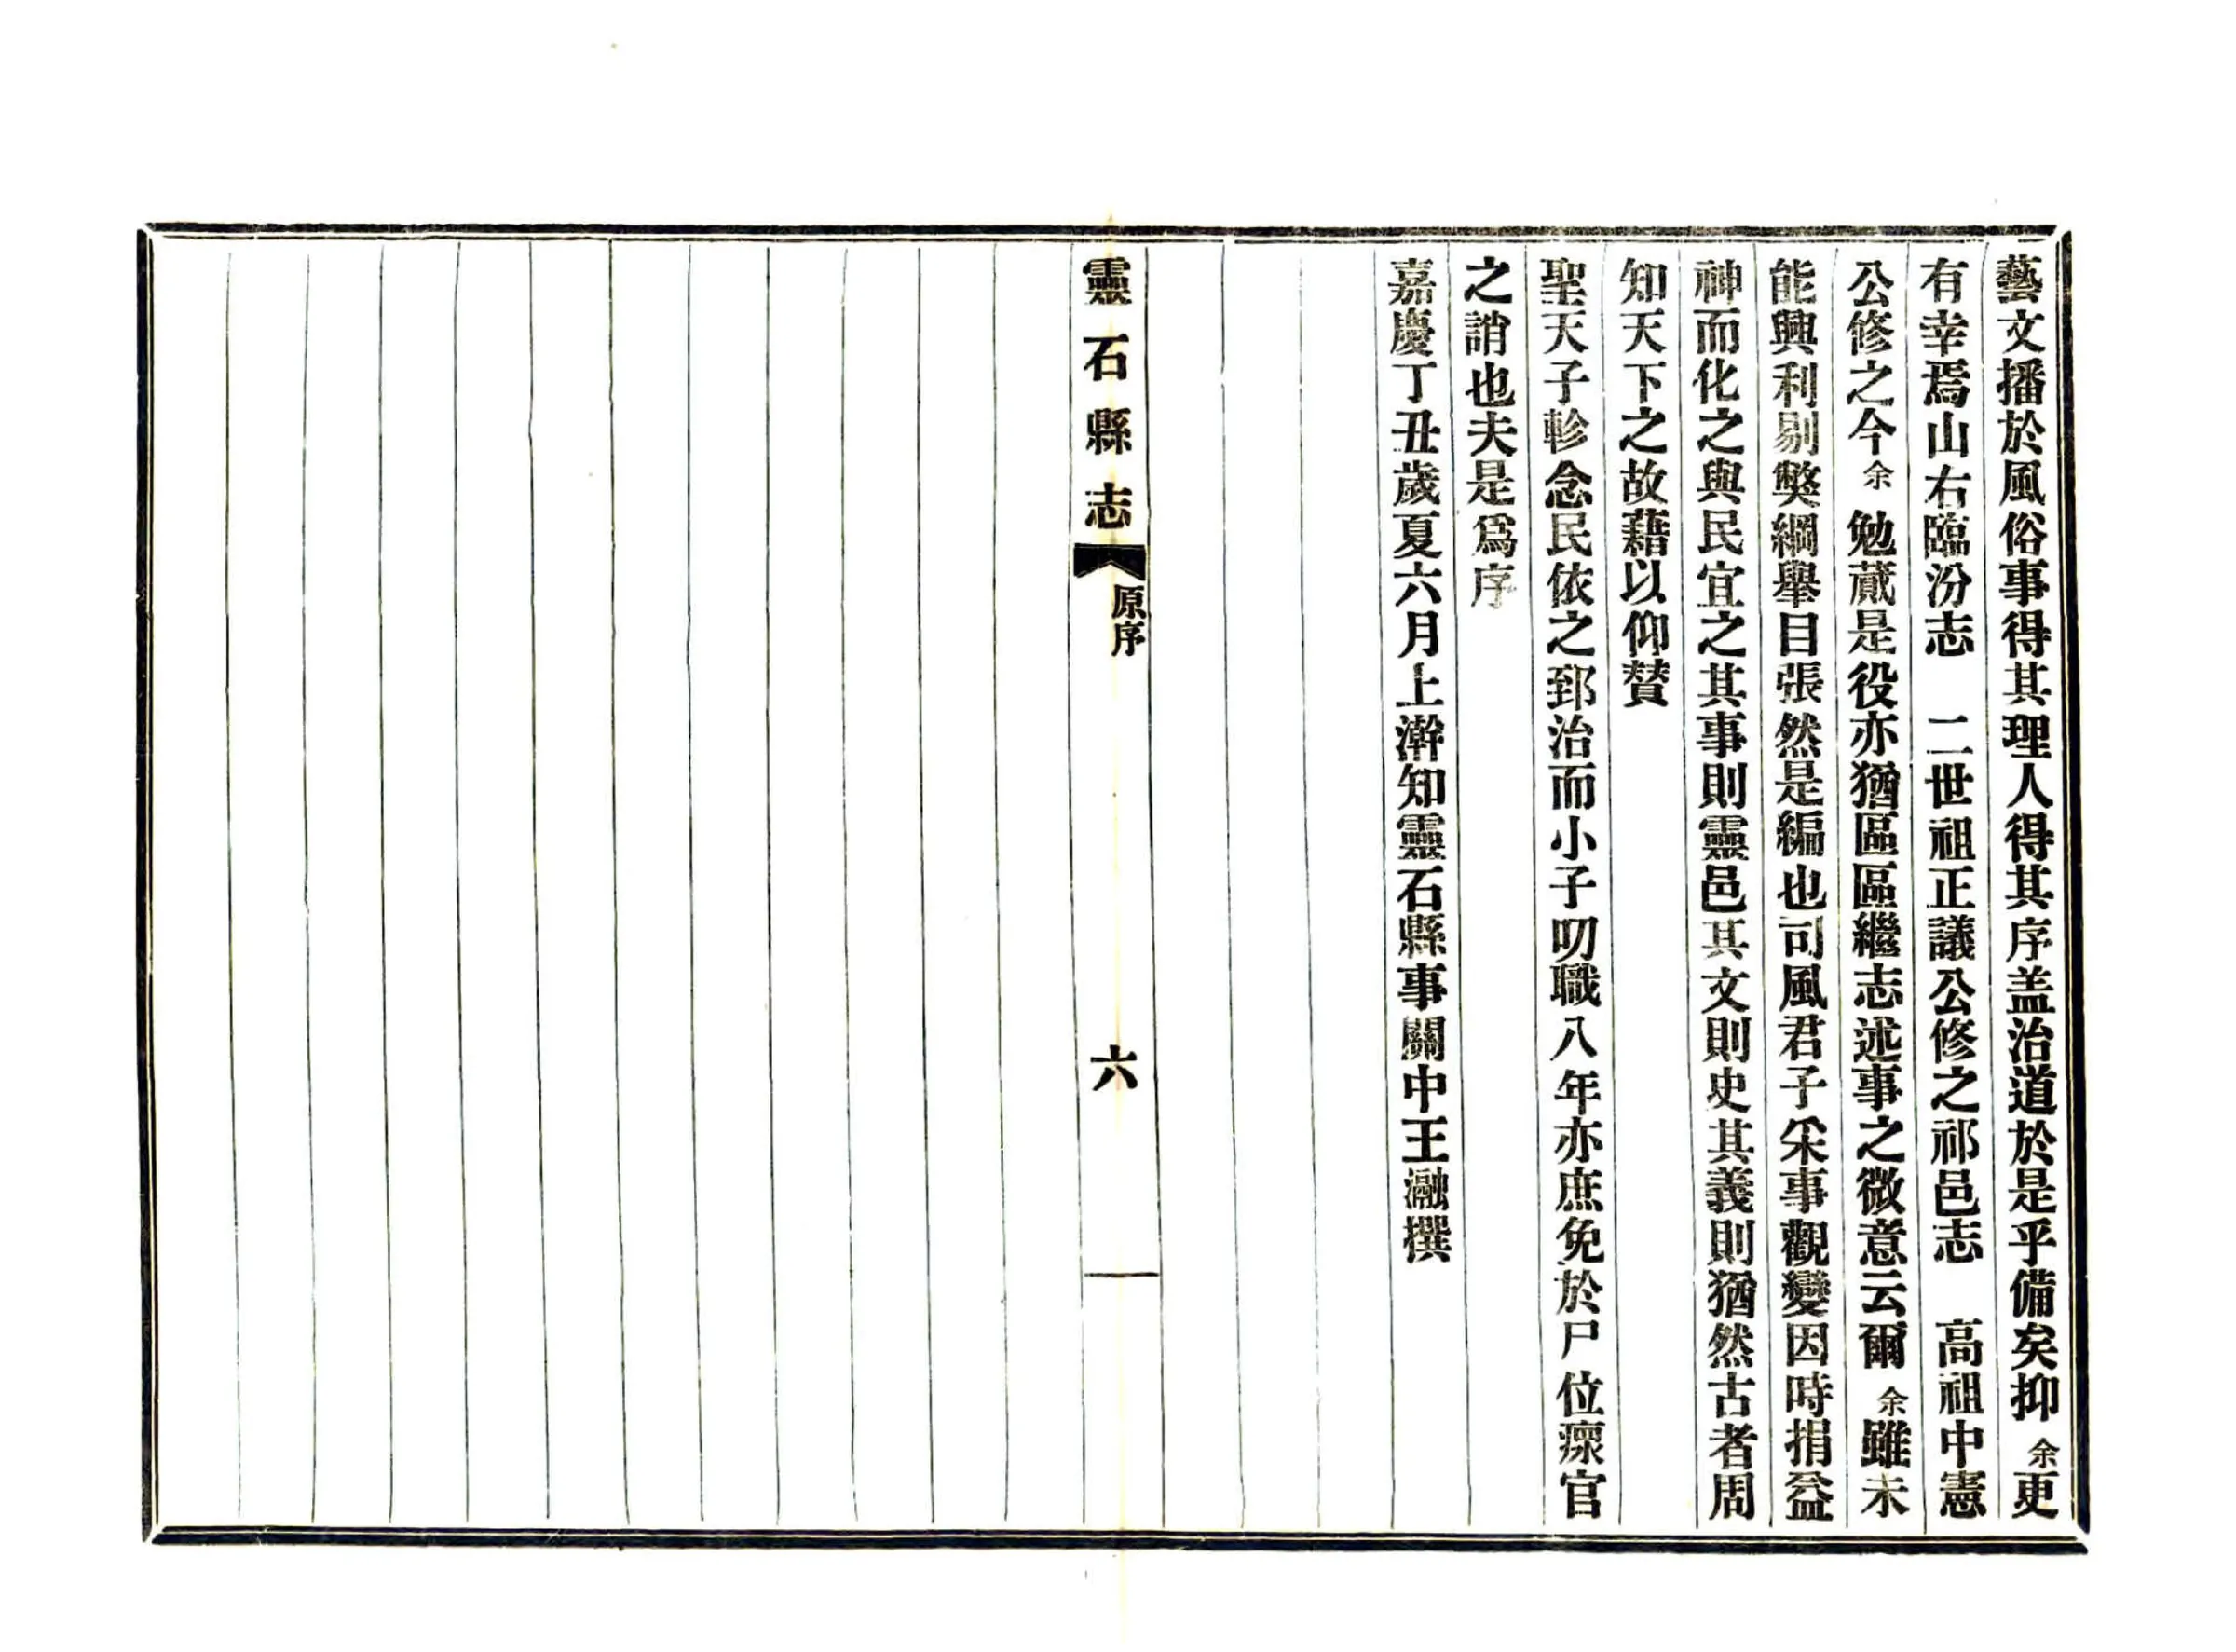 藝文播於風俗事得其理人得其序盖治道於是乎備矣抑余更
有幸焉山右臨汾志　二世祖正議公修之祁邑志　高祖中憲
公修之今余勉蕆是役亦猶區區繼志述事之微意云爾余雖未
能興利剔獘綱舉目張然是編也司風君子采事觀變因時捐益
神而化之與民宜之其事則靈邑其文則史其義則猶然古者周
知天下之故藉以仰賛
聖天子軫念民依之郅治而小子叨職八年亦庶免於尸位瘝官
之誚也夫是爲序
嘉慶丁丑歲夏六月上澣知靈石縣事關中王瀜撰
靈石縣志
原序
六